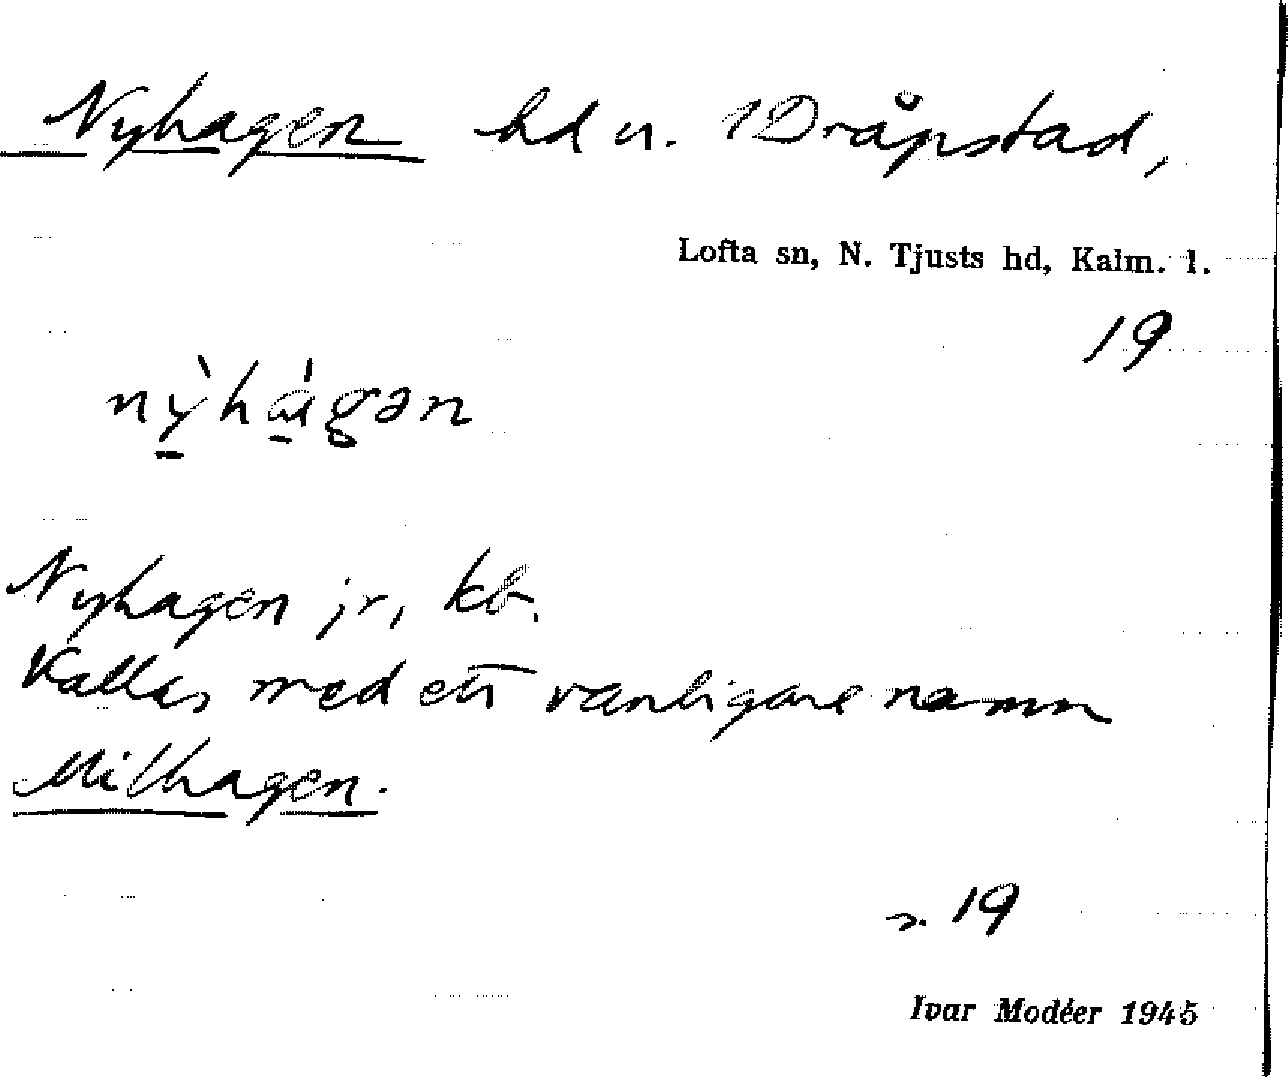 Nyhagen hd u. 1 Dråpstad,
Lofta sn, N. Tjusts hd, Kalm. l.
19
nỳhágən
Nyhagen jr, kb.
Kallas med ett vanligare namn
Millhagen.
s. 19
Ivar Modéer 1945